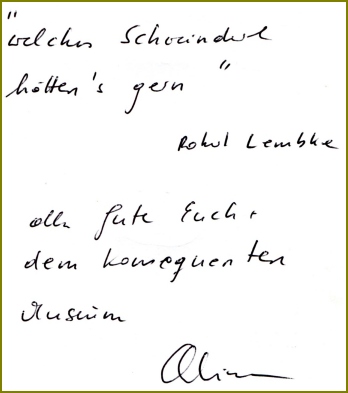 "welches Schweinderl
hätten's gern"
Robert Lembke
alles Gute Euch +
dem konsequenten
Museum